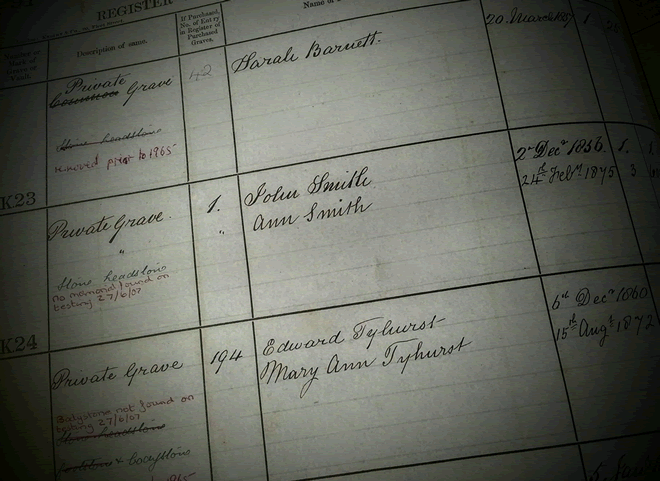 REGISTER
Description of same.
If Purchased
No. of Entry
in Register of
Purchased
Graves.
Name of
Private
Common Grave
42
Sarah Barnett.
20. March
1
Stone headstone
removed prior to 1965
K23
Private Grave.
1.
John Smith
2nd Decr 1856.
1.
1.
"
"
Ann Smith
24th Febry 1875
3
Stone headstone
no memorial found on
testing 27/6/07
K24
Private Grave
194
Edward Tyhurst
6th Decr 1860
Mary Ann Tyhurst
15th Augt 1872
Bodystone not found on
testing 27/6/07
Stone headstone
& bodystone